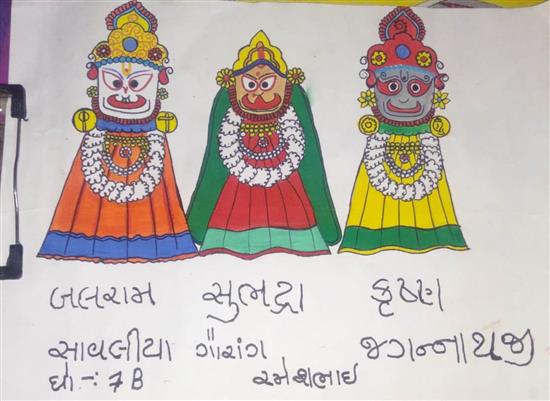 બલરામ સુભદ્રા કૃષ્ણ
સાવલીયા ગૌરાંગ જગન્નાથજી
ધો.-: 7 B રમેશભાઇ